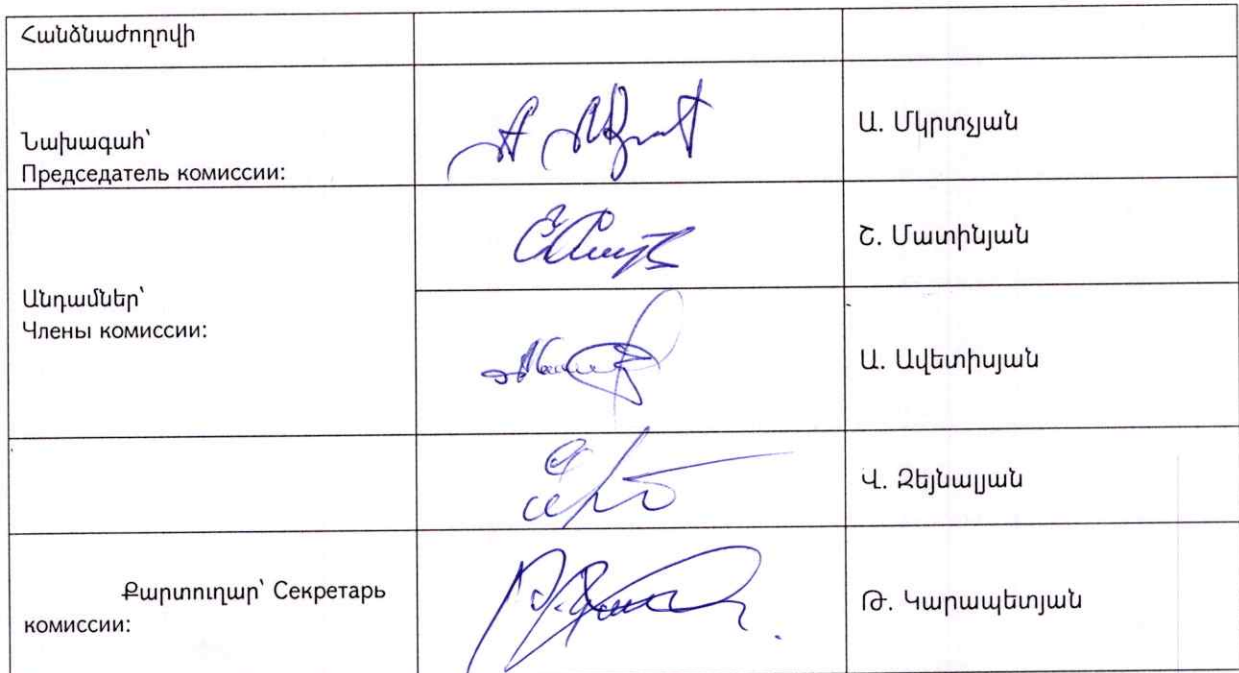 Հանձնաժողովի
Նախագահ՝
Председатель комиссии:
Ա. Մկրտչյան
Անդամներ՝
Члены комиссии:
Շ. Մատինյան
Ա. Ավետիսյան
Վ. Զեյնալյան
Քարտուղար՝ Секретарь
комиссии:
Թ. Կարապետյան